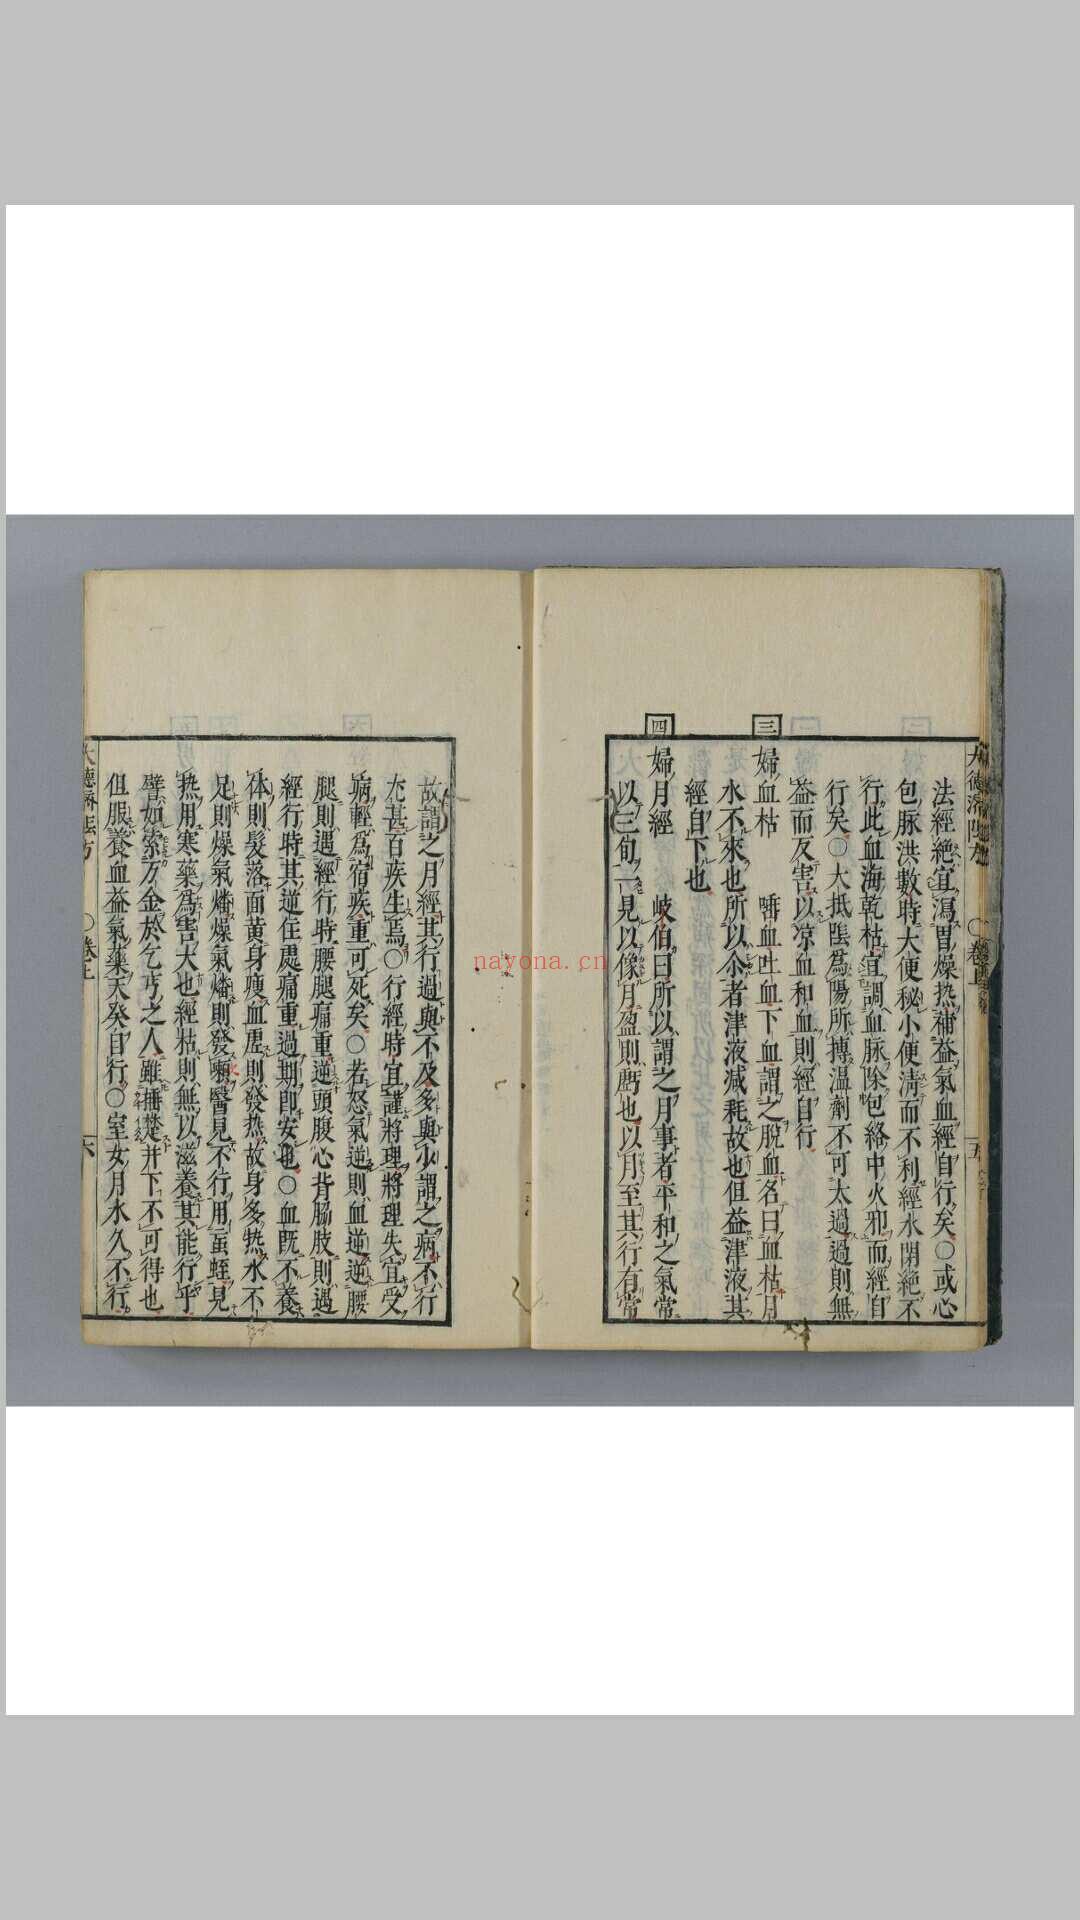 法經絕宜瀉胃燥热補益氣血經自行矣○或心
包脉洪數時大便秘小便清而不利經水閉絕不
行此血海乾枯宜調血脉除包絡中火邪而經自
行矣○大抵陰爲陽所搏温劑不可太過過則無
益而反害以凉血和血則經自行
三
婦血枯 唾血吐血下血謂之脫血名曰血枯月
水不來也所以尒者津液減耗故也但益津液其
經自下也
四
婦月經 岐伯曰所以謂之月事者平和之氣常
以三旬一見以像月盈則虧也以月至其行有常
故謂之月經其行過與不及多與少謂之病不行
尤甚百疾生焉○行經時宜謹將理將理失宜受
病輕爲宿疾重可死矣○若怒氣逆則血逆逆腰
腿則遇經行時腰腿痛重逆頭腹心背脇肢則遇
經行時其逆住處痛重過期即安也○血既不養
体則髮落面黄身瘦血虛則發热故身多热水不
足則燥氣燔燥氣燔則發 醫見不行用虻蛭見
热用寒藥爲害大也經枯則無以滋養其能行乎
譬如索万金於乞丐之人雖捶楚并下不可得也
但服養血益氣藥天癸自行○室女月水久不行
大德濟陰方
○卷上
五
六
nayona.cn